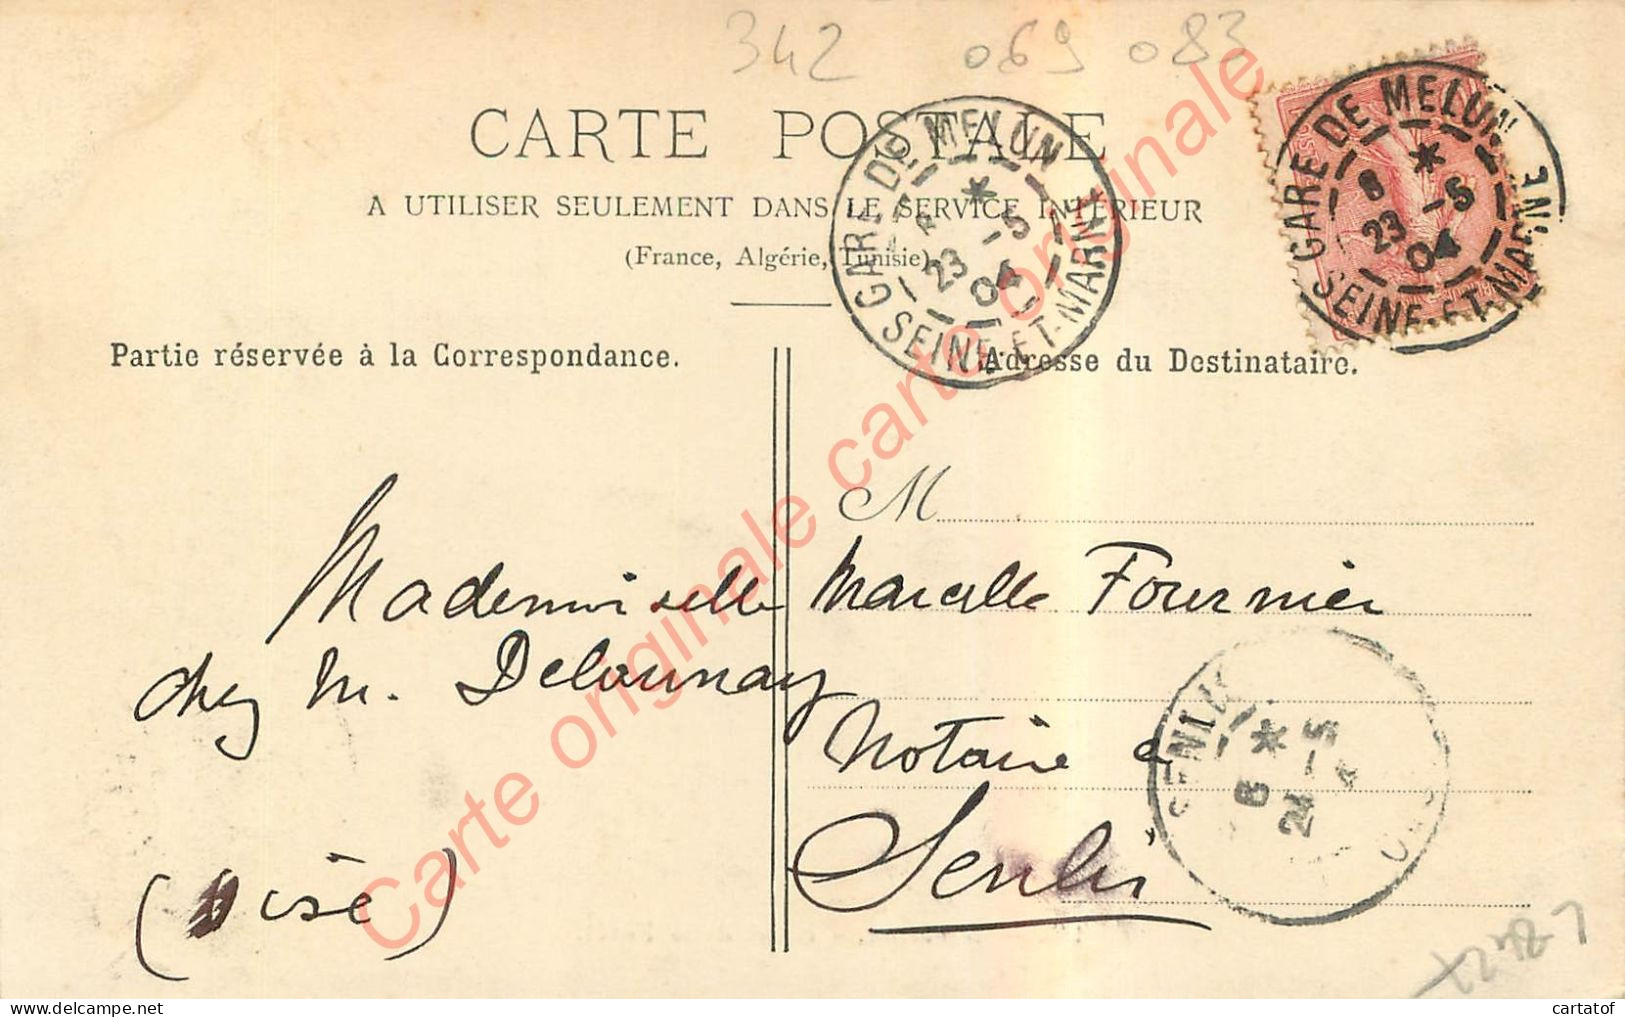 342 069 083
CARTE POSTALE
A UTILISER SEULEMENT DANS LE SERVICE INTÉRIEUR
(France, Algérie, Tunisie)
GARE DE MELUN
8
23 -5
04
SEINE-ET-MARNE
GARE DE MELUN
8
23 -5
04
SEINE-ET-MARNE
Partie réservée à la Correspondance.
Adresse du Destinataire.
M
Mademoiselle Marcelle Fournier
chez M. Delaunay
Notaire à
Senlis
(Oise)
SENLIS
OISE
Carte originale carte originale carte originale
cartatof